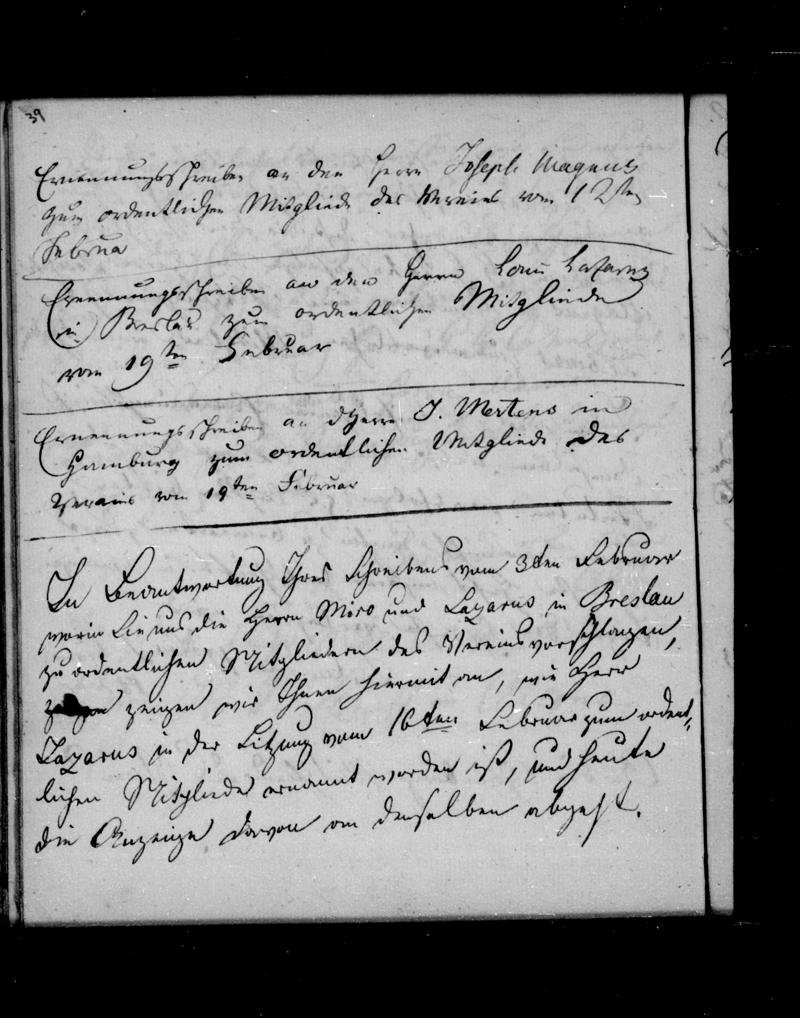 39
Ernennungsschreiben an den Herrn Joseph Magnus
zum ordentlichen Mitgliede des Vereins vom 12ten
Februa
Ernennungsschreiben an den Herrn Louis Lazarus
in Breslau zum ordentlichen Mitgliede
vom 19ten Februar
Ernennungsschreiben an dHerrn J. Mertens in
Hamburg zum ordentlichen Mitgliede des
Vereins vom 19ten Februar
In Beantwortung Ihres Schreibens vom 3ten Februar
worin Sie uns die Herrn Miro und Lazarus in Breslau
zu ordentlichen Mitgliedern des Vereins vorschlagen,
zeigen wir Ihnen hiermit an, wie Herr
Lazarus in der Sitzung vom 16ten Februar zum ordent,
lichen Mitgliede ernannt worden ist, und heute
die Anzeige davon an denselben abgeht.